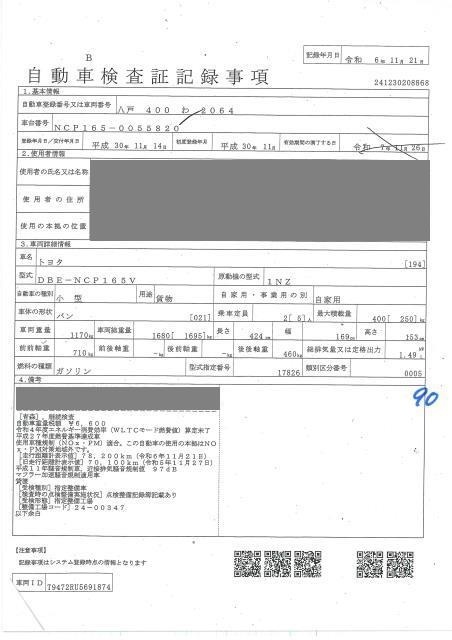 B
記録年月日 令和 6年 11月 21日
自動車検査証記録事項
241230208868
1.基本情報
自動車登録番号又は車両番号 八戸 400 わ 2064
車台番号 NCP165-0055820
登録年月日/交付年月日 平成 30年 11月 14日 初度登録年月 平成 30年 11月 有効期間の満了する日 令和 7年 11月 26日
2.使用者情報
使用者の氏名又は名称
使用者の住所
使用の本拠の位置
3.車両詳細情報
車名 トヨタ [194]
型式 DBE-NCP165V 原動機の型式 1NZ
自動車の種別 小型 用途 貨物 自家用・事業用の別 自家用
車体の形状 バン [021] 乗車定員 2[ 5]人 最大積載量 400[ 250]kg
車両重量 1170kg 車両総重量 1680[ 1695]kg 長さ 424cm 幅 169cm 高さ 153cm
前前軸重 710kg 前後軸重 -kg 後前軸重 -kg 後後軸重 460kg 総排気量又は定格出力 1.49
燃料の種類 ガソリン 型式指定番号 17826 類別区分番号 0005
4.備考
90
[青森], 継続検査
自動車重量税額 ¥6,600
令和4年度エネルギー消費効率(WLTCモード燃費値)算定未了
平成27年度燃費基準達成車
使用車種規制(NOx・PM)適合。この自動車の使用の本拠はNO
x・PM対策地域外です。
[走行距離計表示値] 78,200km(令和6年11月21日)
[旧走行距離計表示値] 70,100km(令和5年11月27日)
平成11年騒音規制車, 近接排気騒音規制値 97dB
マフラー加速騒音規制適用車
貸渡
[受検種別] 指定整備車
[検査時の点検整備実施状況] 点検整備記録簿記載あり
[受検形態] 指定整備工場
[整備工場コード] 24-00347
以下余白
【注意事項】
記録事項はシステム登録時点の情報となります
車両ID T9472RU5691874